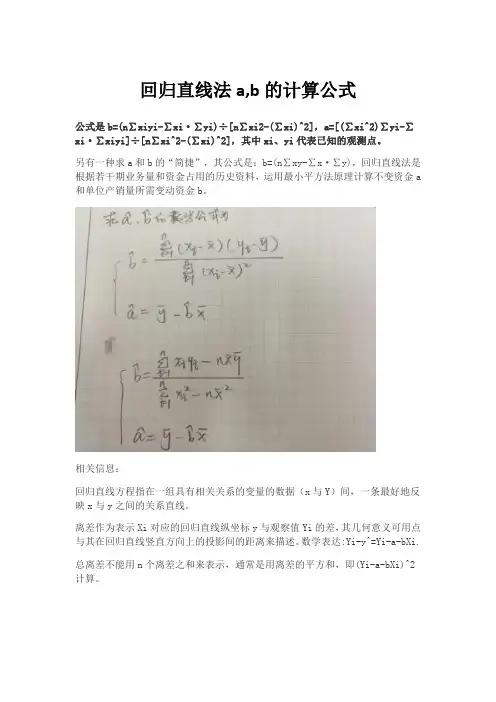 回归直线法a,b的计算公式
公式是b=(n∑xiyi-∑xi·∑yi)÷[n∑xi2-(∑xi)^2],a=[(∑xi^2)∑yi-∑
xi·∑xiyi]÷[n∑xi^2-(∑xi)^2],其中xi、yi代表已知的观测点。
另有一种求a和b的“简捷”,其公式是:b=(n∑xy-∑x·∑y),回归直线法是
根据若干期业务量和资金占用的历史资料,运用最小平方法原理计算不变资金a
和单位产销量所需变动资金b。
求â、b̂的数学公式为
b̂ = ∑ⁿᵢ₌₁(xᵢ-x̄)(yᵢ-ȳ) / ∑ⁿᵢ₌₁(xᵢ-x̄)²
â = ȳ - b̂x̄
b̂ = ∑ⁿᵢ₌₁xᵢyᵢ - nx̄ȳ / ∑ⁿᵢ₌₁xᵢ² - nx̄²
â = ȳ - b̂x̄
相关信息:
回归直线方程指在一组具有相关关系的变量的数据(x与Y)间,一条最好地反
映x与y之间的关系直线。
离差作为表示Xi对应的回归直线纵坐标y与观察值Yi的差,其几何意义可用点
与其在回归直线竖直方向上的投影间的距离来描述。数学表达:Yi-y^=Yi-a-bXi.
总离差不能用n个离差之和来表示,通常是用离差的平方和,即(Yi-a-bXi)^2
计算。